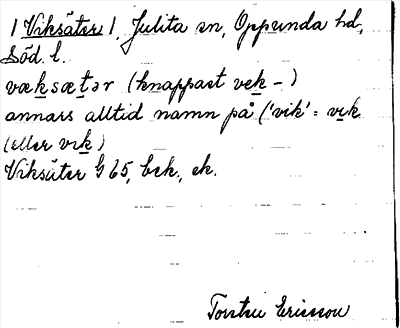 1 Viksäter 1, Julita sn, Oppunda hd,
Söd. l.
væksætər (knappast vek-)
annars alltid namn på ('vik' = vɩk
(eller vɩk)
Viksäter G 65, bek., ek.
Torsten Ericsson